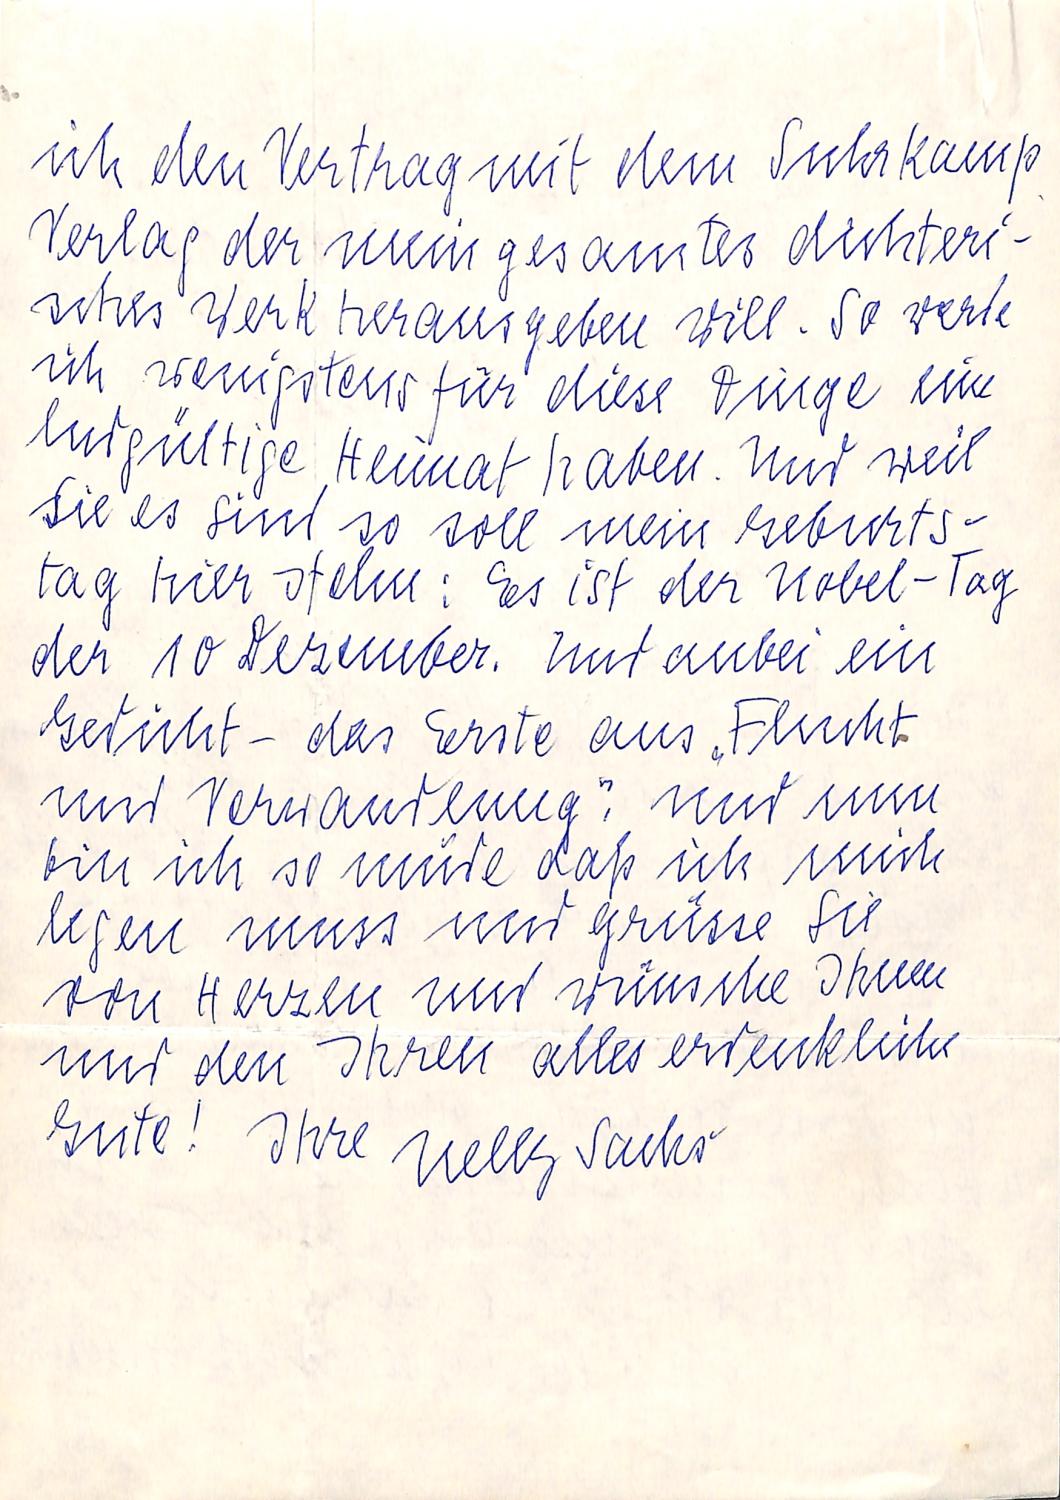 ich den Vertrag mit dem Suhrkamp
Verlag der mein gesamtes dichteri-
sches Werk herausgeben will. So werde
ich wenigstens für diese Dinge eine
Endgültige Heimat haben. Und weil
Sie es sind so soll mein Geburts-
tag hier stehn: Es ist der Nobel-Tag
der 10 Dezember. Und anbei ein
Gedicht – das Erste aus „Flucht
und Verwandlung". Und nun
bin ich so müde daß ich mich
legen muss und grüsse Sie
von Herzen und wünsche Ihnen
und den Ihren alles erdenkliche
Gute! Ihre Nelly Sachs